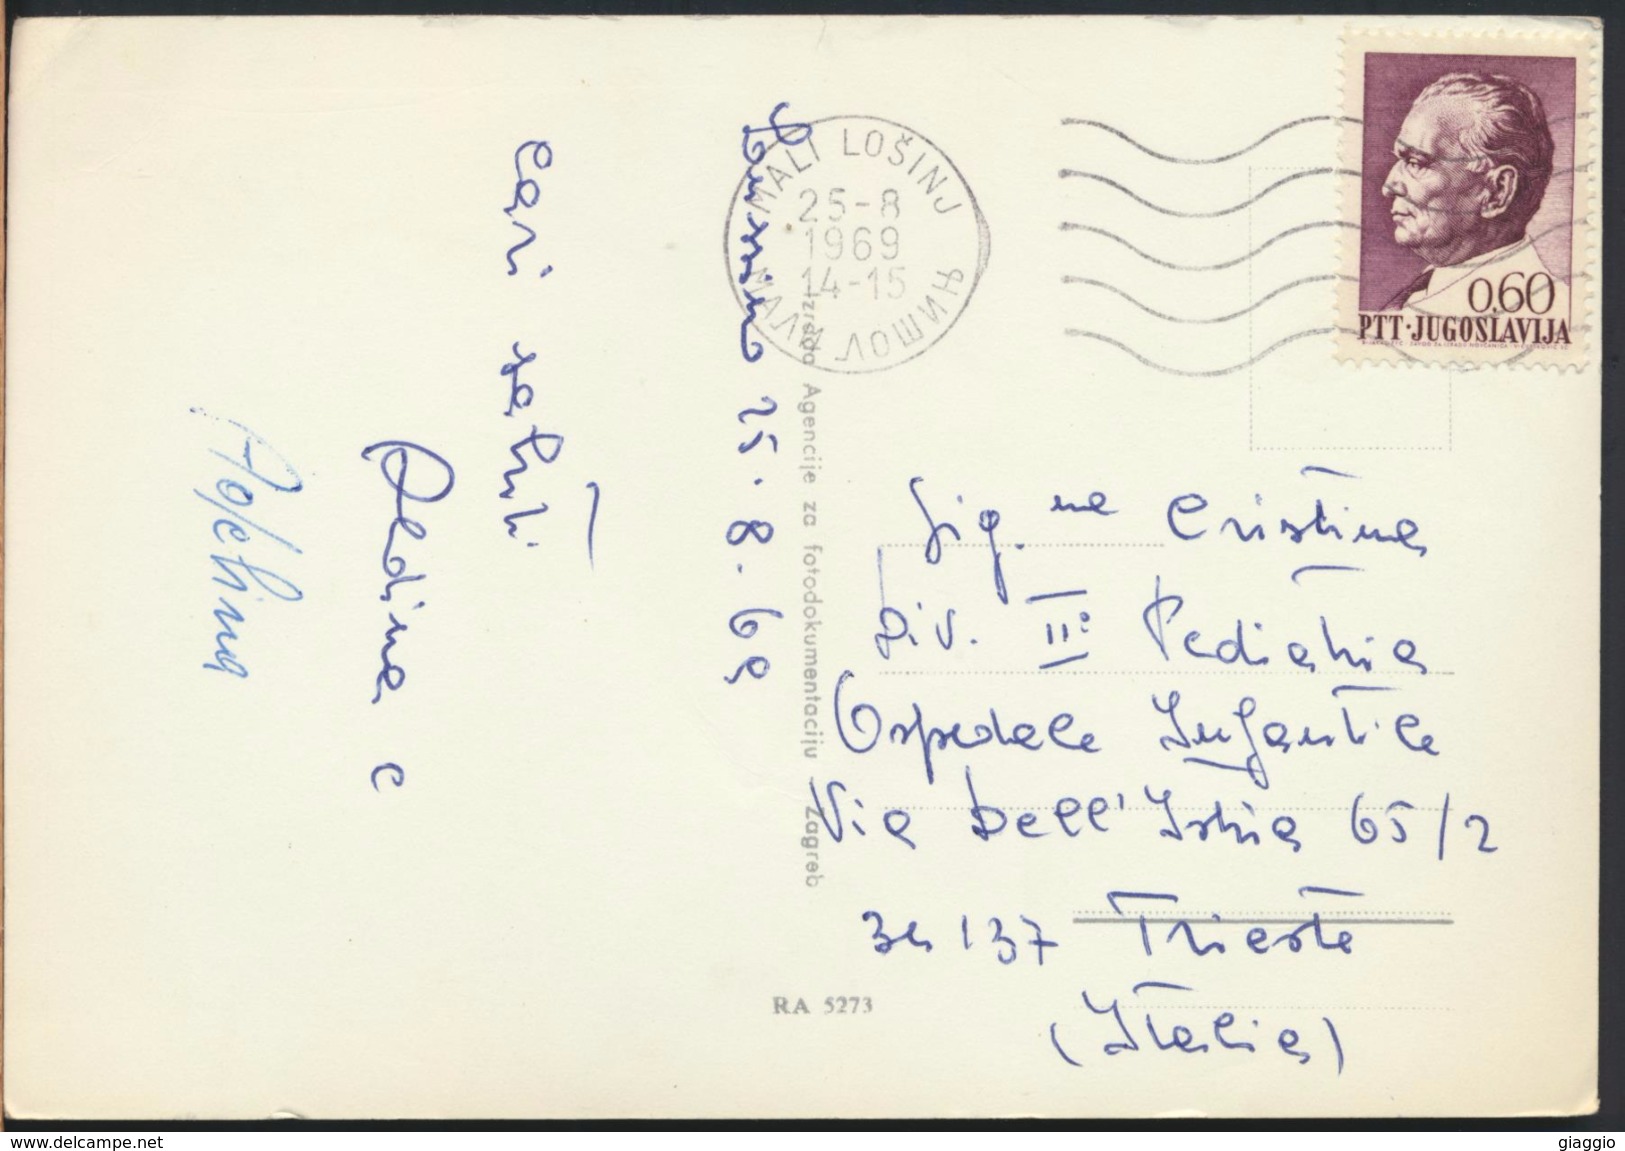 Lussino 25.8.69
Cari saluti
Aldina e
MALI LOŠINJ
25-8
1969
14-15
МАЛИ ЛОШИЊ
0.60
PTT·JUGOSLAVIJA
Izrada Agencije za fotodokumentaciju Zagreb
Sig.na Cristina
Div. II° Pediatria
Ospedale Infantile
Via Dell'Istria 65/2
34137 Trieste
(Italia)
RA 5273
www.delcampe.net
giaggio